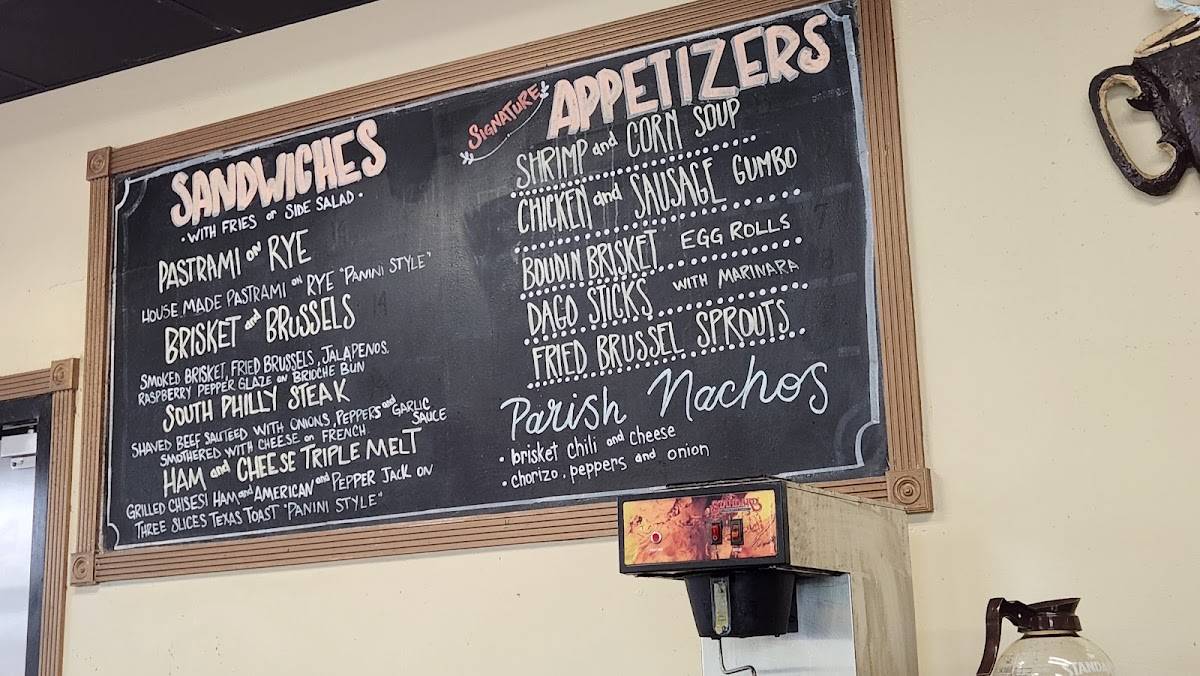 SANDWICHES
• WITH FRIES or SIDE SALAD •
PASTRAMI on RYE
HOUSE MADE PASTRAMI on RYE "PANINI STYLE"
BRISKET and BRUSSELS
SMOKED BRISKET, FRIED BRUSSELS, JALAPENOS,
RASPBERRY PEPPER GLAZE on BRIOCHE BUN
SOUTH PHILLY STEAK
SHAVED BEEF SAUTEED WITH ONIONS, PEPPERS and GARLIC SAUCE
SMOTHERED WITH CHEESE on FRENCH
HAM and CHEESE TRIPLE MELT
GRILLED CHISES! HAM and AMERICAN and PEPPER JACK ON
THREE SLICES TEXAS TOAST "PANINI STYLE"
SIGNATURE
APPETIZERS
SHRIMP and CORN SOUP
CHICKEN and SAUSAGE GUMBO
BOUDIN BRISKET EGG ROLLS
DAGO STICKS WITH MARINARA
FRIED BRUSSEL SPROUTS
Parish Nachos
• brisket chili and cheese
• chorizo, peppers and onion
STANDA